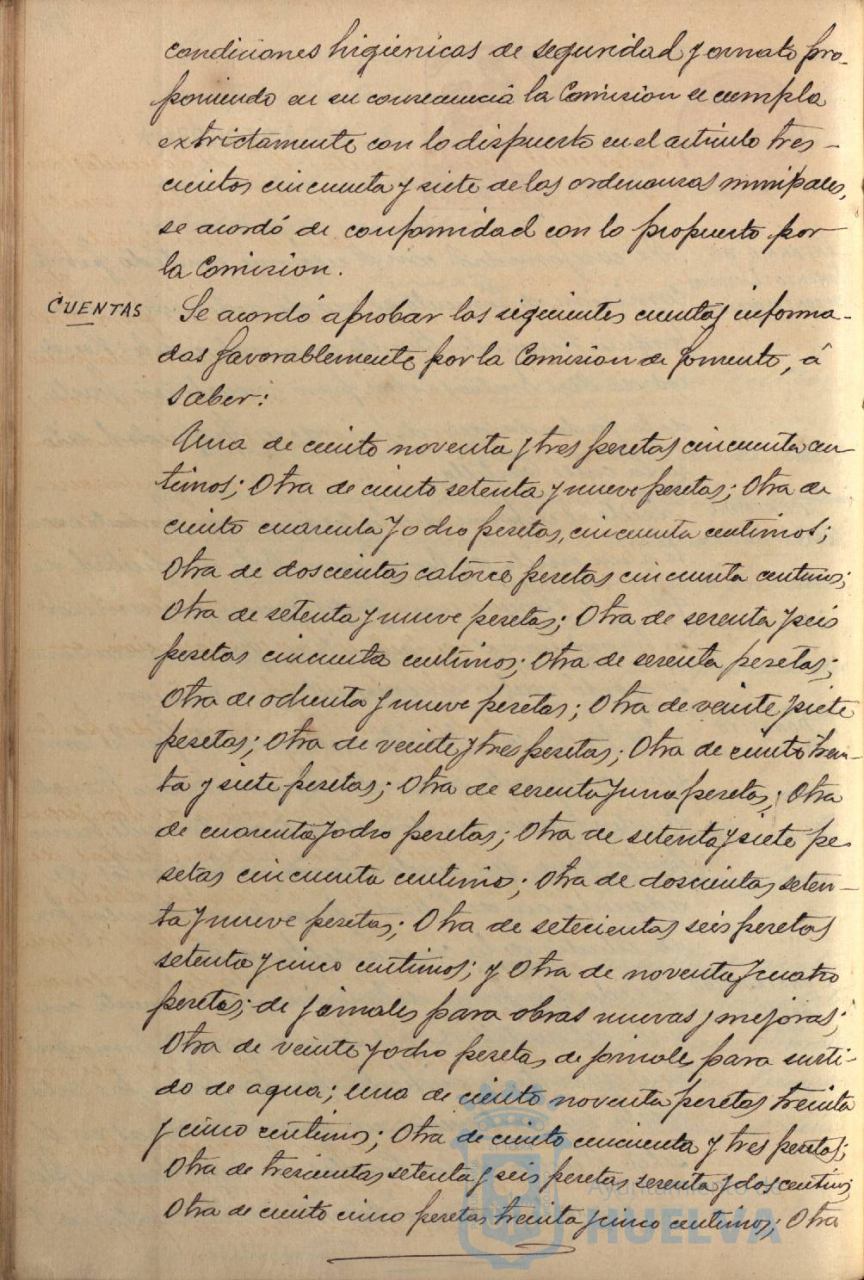 condiciones higiénicas de seguridad y ornato pro-
poniendo en su consecuencia la Comision se cumpla
extrictamente con lo dispuesto en el artículo tres-
cientos cincuenta y siete de las ordenanzas munipales,
se acordó de conformidad con lo propuesto por
la Comision.
CUENTAS
Se acordó aprobar las siguientes cuentas informa-
das favorablemente por la Comision de fomento, á
saber:
Una de ciento noventa y tres pesetas cincuenta cen
timos; Otra de ciento setenta y nueve pesetas; Otra de
ciento cuarenta y ocho pesetas, cincuenta centimos;
Otra de doscientas catorce pesetas cincuenta centimos;
Otra de setenta y nueve pesetas; Otra de sesenta y seis
pesetas cincuenta centimos; Otra de sesenta pesetas;
Otra de ochenta y nueve pesetas; Otra de veinte y siete
pesetas; Otra de veinte y tres pesetas; Otra de ciento trein-
ta y siete pesetas; Otra de sesenta y una pesetas; Otra
de cuarenta y ocho pesetas; Otra de setenta y siete pe
setas cincuenta centimos; Otra de doscientas seten-
ta y nueve pesetas; Otra de setecientas seis pesetas
setenta y cinco centimos; y Otra de noventa y cuatro
pesetas; de jornales para obras nuevas y mejoras;
Otra de veinte y ocho pesetas de jornales para surti-
do de agua; una de ciento noventa pesetas treinta
y cinco centimos; Otra de ciento cincuenta y tres pesetas;
Otra de trescientas setenta y seis pesetas sesenta y dos centimos;
Otra de ciento cinco pesetas treinta y cinco centimos; Otra
HUELVA